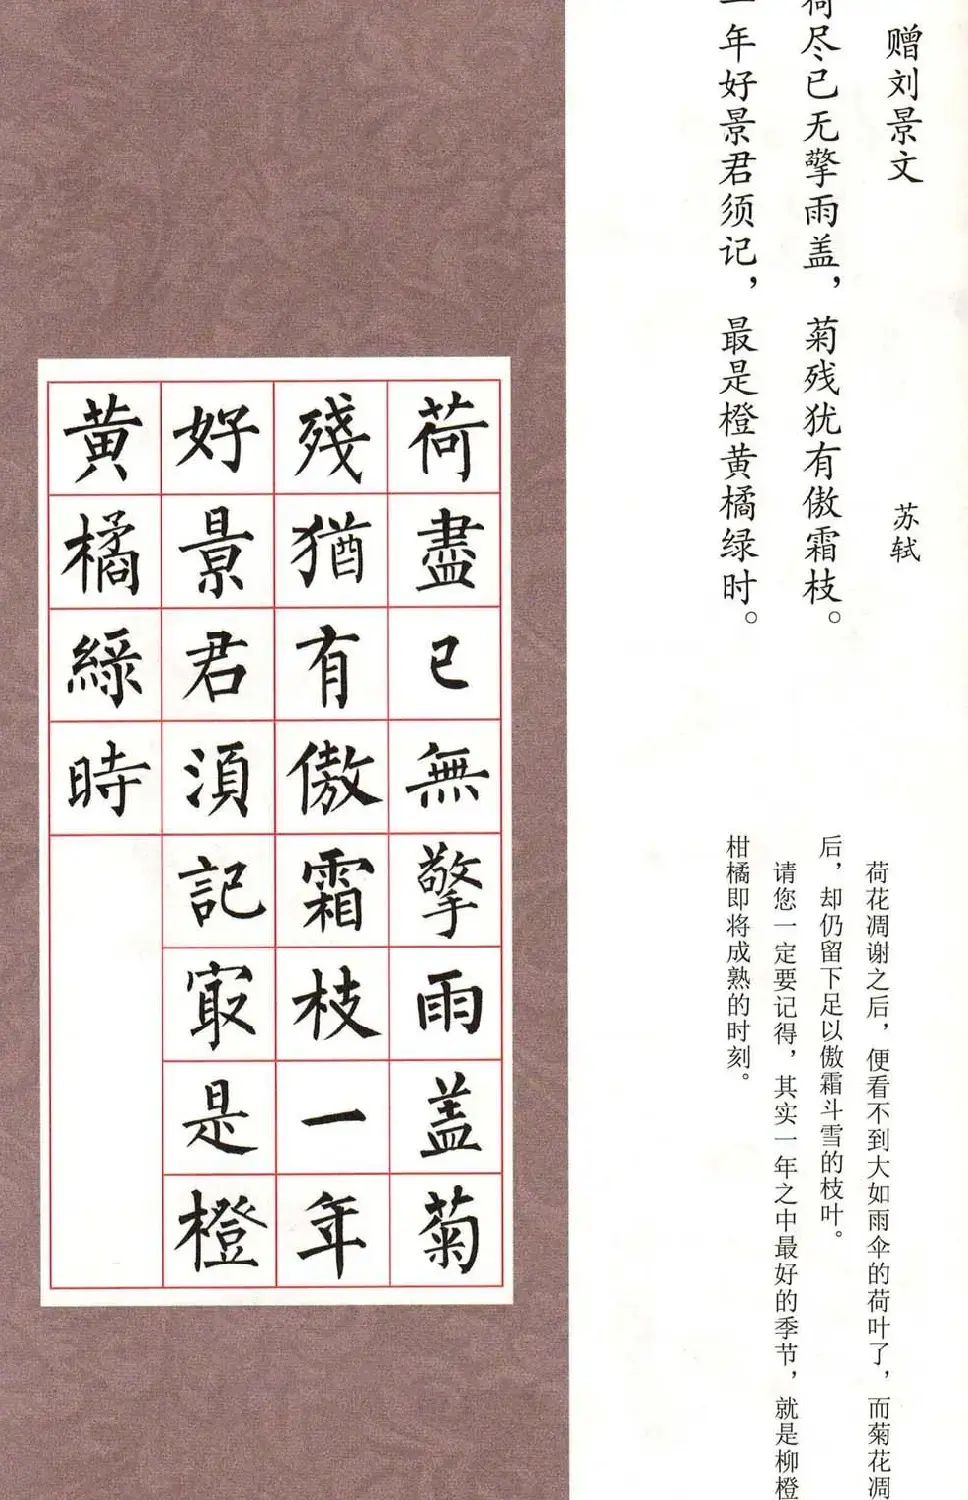 赠刘景文
苏轼
荷尽已无擎雨盖，菊残犹有傲霜枝。
一年好景君须记，最是橙黄橘绿时。
荷花凋谢之后，便看不到大如雨伞的荷叶了，而菊花凋
后，却仍留下足以傲霜斗雪的枝叶。
请您一定要记得，其实一年之中最好的季节，就是柳橙
柑橘即将成熟的时刻。
荷盡已無擎雨盖菊
殘猶有傲霜枝一年
好景君須記冣是橙
黄橘綠時